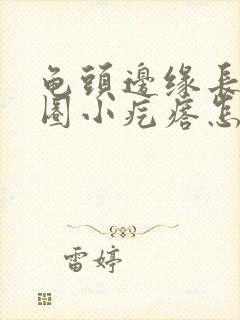 龟頭邊缘長
圈小疙瘩怎
雷婷